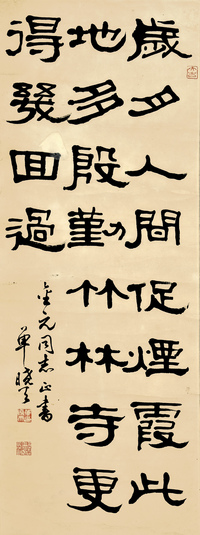 歲月人間促煙霞此
地多殷勤竹林寺更
得幾回過
金元同志正書
單曉天